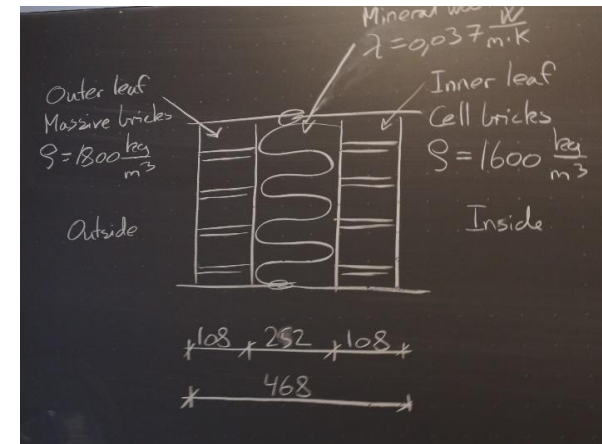 Mineral
λ = 0,037 W/m·K
Outer leaf
Massive bricks
ρ = 1800 kg/m³
Inner leaf
Cell bricks
ρ = 1600 kg/m³
Outside
Inside
108 252 108
468